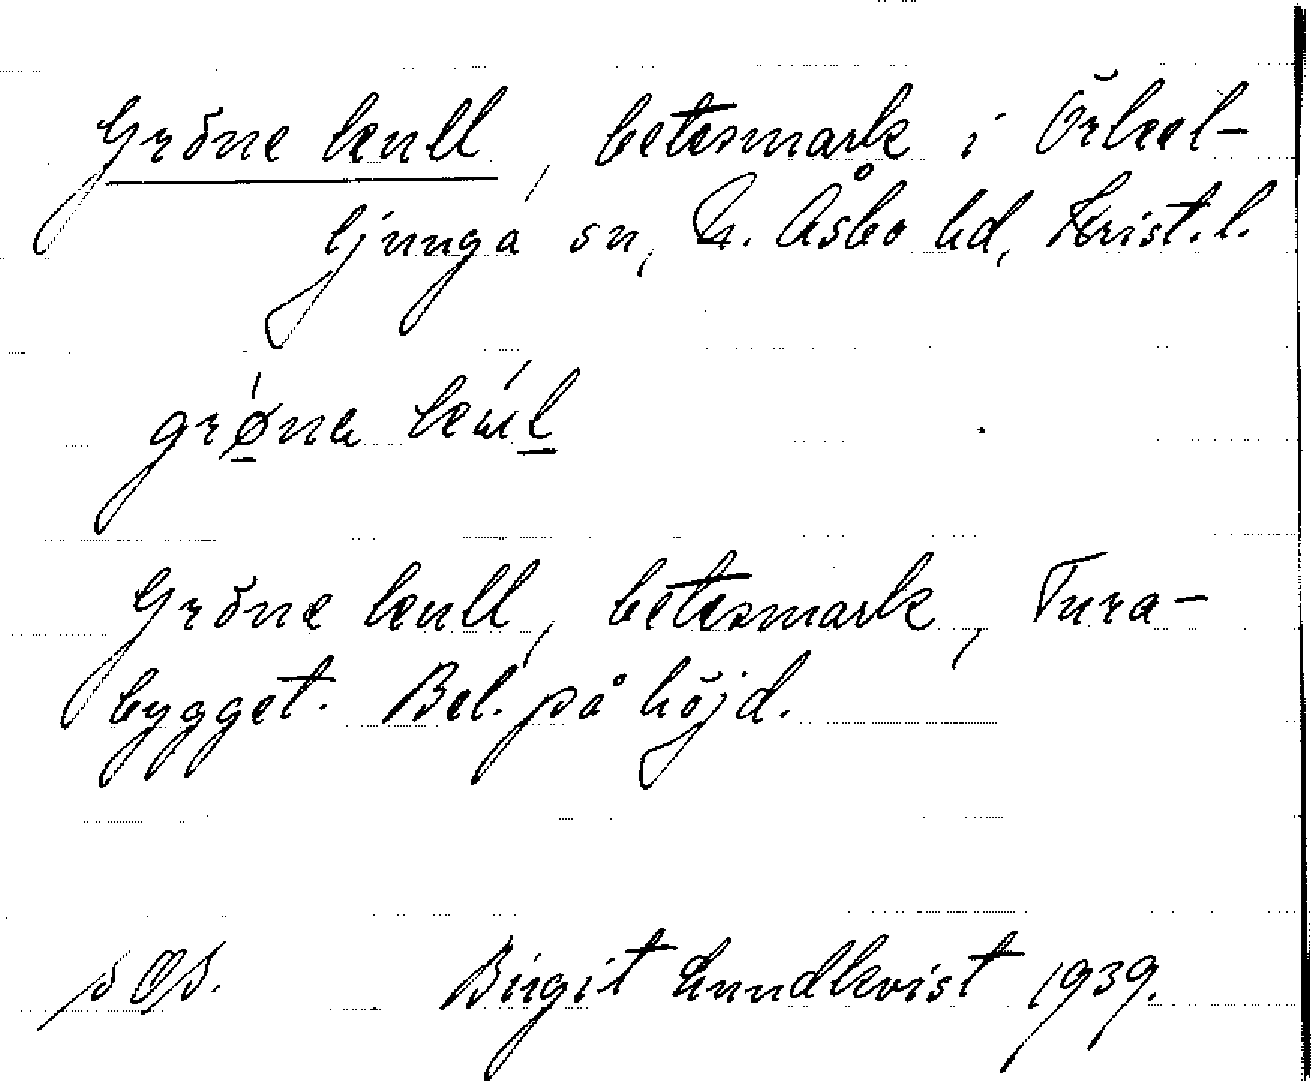 Gröne kull, betesmark i Örkel-
ljunga sn, N. Åsbo hd, Krist. l.
grǿ̱na kúḻ
Gröne kull, betesmark, Tura-
bygget. Bel. på höjd.
Birgit Lundkvist 1939.